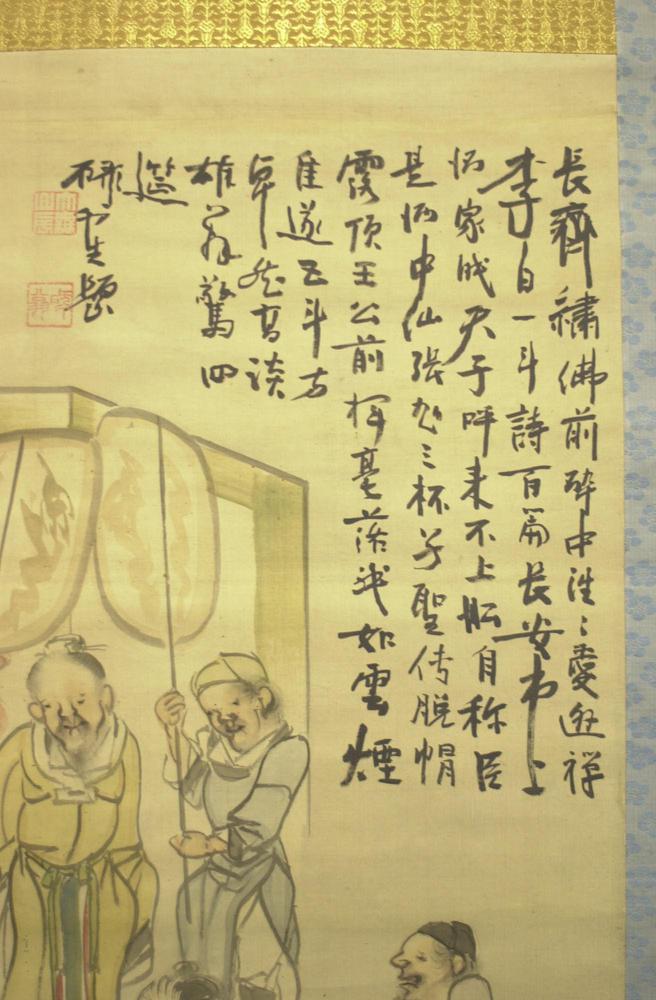 長齋繍佛前醉中往〻愛逃禅
李白一斗詩百篇長安市上
酒家眠天子呼来不上船自称臣
是酒中仙張旭三杯草聖传脱帽
露頂王公前揮毫落紙如雲煙
焦遂五斗方
卓然高談
雄弁驚四
筵
題